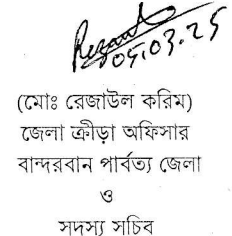 05.03.25
(মোঃ রেজাউল করিম)
জেলা ক্রীড়া অফিসার
বান্দরবান পার্বত্য জেলা
ও
সদস্য সচিব